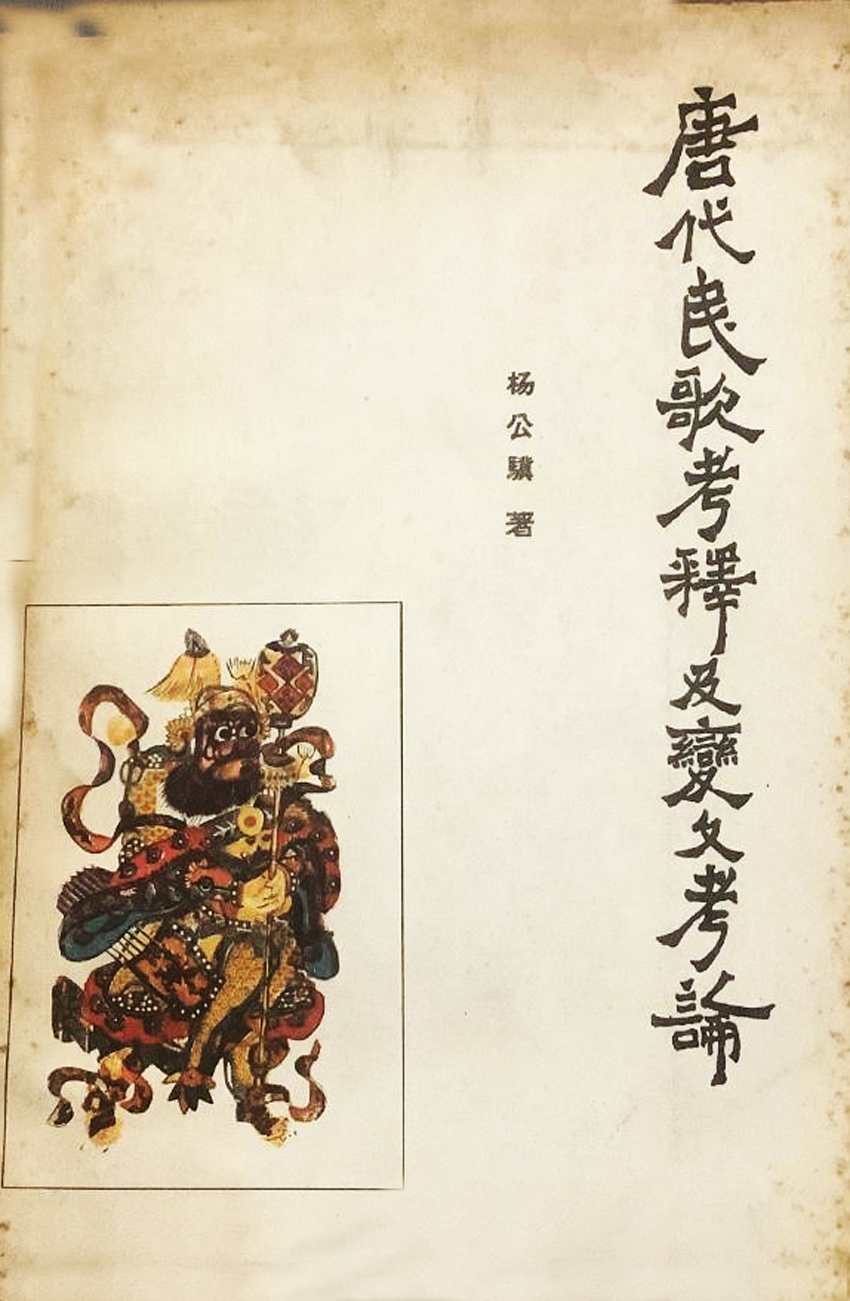 唐代民歌考釋及變文考論
杨公驥 著